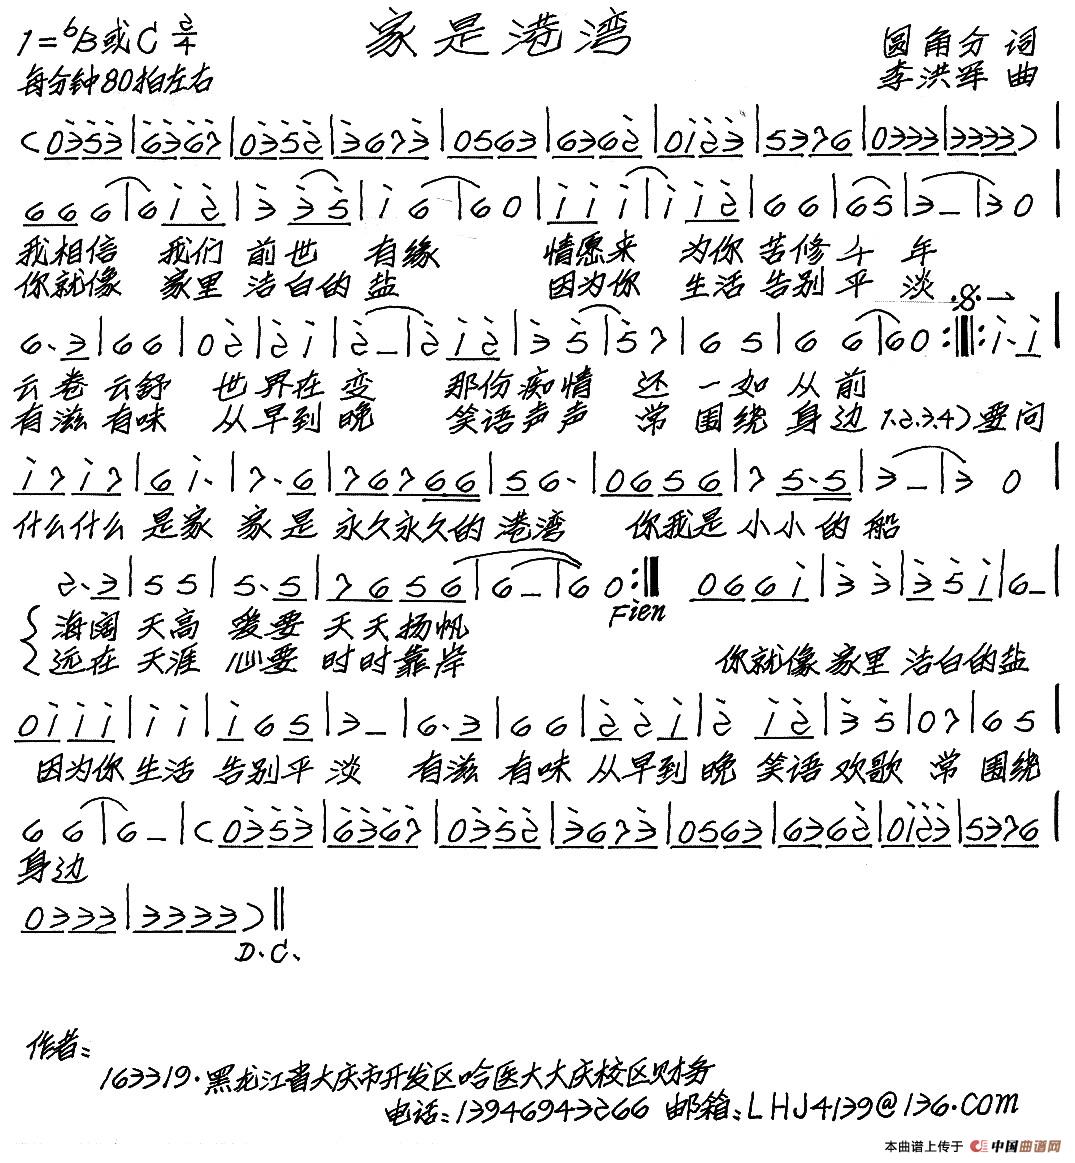 家是港湾
1=ᵇB或C 2/4
圆角分 词
每分钟80拍左右
李洪军 曲
(0353|6367|0352|3673|0563|6362|0123|5376|0333|3333)|
666|612|335|16|60|111|112|66|65|3–|30|
我相信 我们 前世 有缘 情愿来 为你 苦修 千 年
你就像 家里 洁白的 盐 因为你 生活 告别 平 淡
6·3|66|02|21|2–|212|35|57|65|66|60:‖:1·1|
云卷 云舒 世界在 变 那份痴情 还 一如 从 前
有滋 有味 从早到 晚 笑语声声 常 围绕 身边 1.2.3.4)要问
1717|61·|7·6|76766|56·|0656|75·5|3–|30|
什么什么 是家 家是 永久永久的 港湾 你我是 小小的 船
2·3|55|5·5|7656|6–|60:‖ 0661|33|351|6–|
Fien
海阔 天高 爱要 天天扬帆
远在 天涯 心要 时时靠岸 你就像 家里 洁白的盐
0111|11|165|3–|6·3|66|221|212|35|07|65|
因为你 生活 告别平 淡 有滋 有味 从早到 晚 笑语 欢歌 常 围绕
66|6–|(0353|6367|0352|3673|0563|6362|0123|5376|
身边
0333|3333)‖
D.C.
作者:
163319·黑龙江省大庆市开发区哈医大大庆校区财务
电话:13946943266 邮箱:LHJ4139@136.com
本曲谱上传于 中国曲谱网